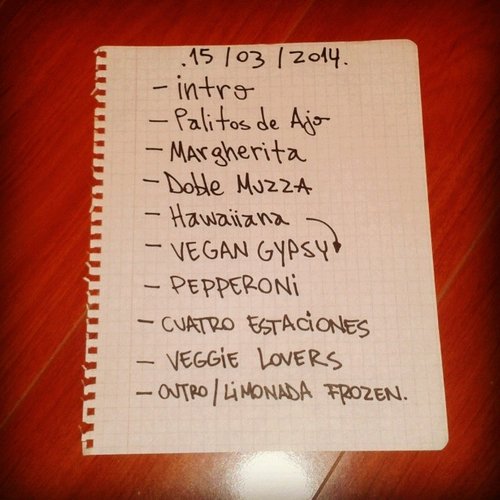 .15/03/2014.
- intro
- Palitos de Ajo
- Margherita
- Doble Muzza
- Hawaiiana
- VEGAN GYPSY
- PEPPERONi
- CUATRO ESTACiONES
- VEGGiE LOVERS
- OUTRO/LiMONADA FROZEN.